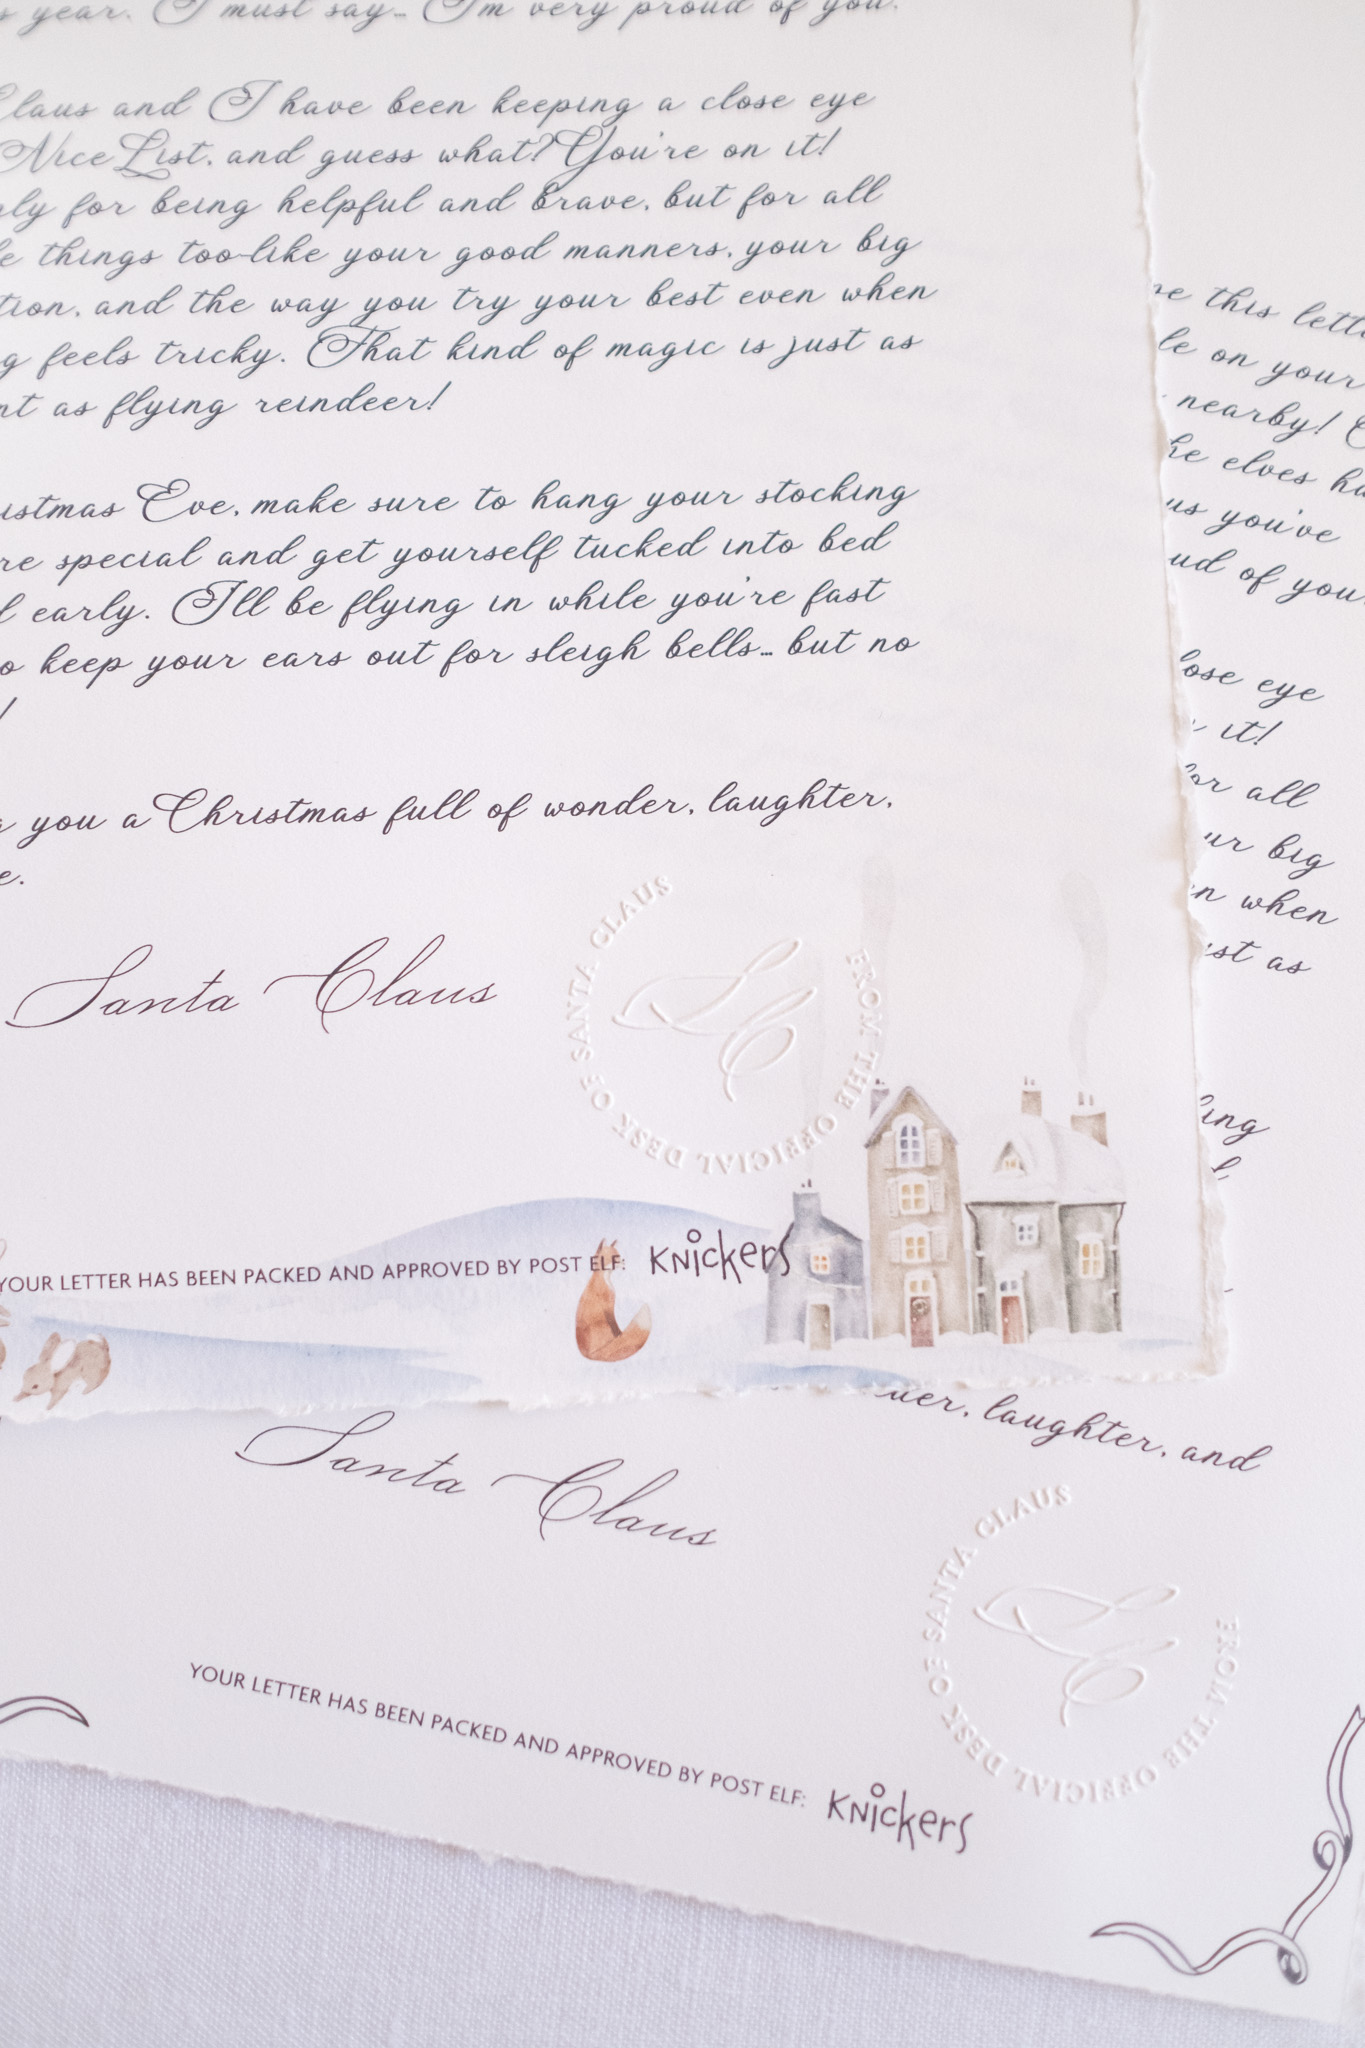 year. I must say... I'm very proud of you.
Claus and I have been keeping a close eye
Nice List, and guess what? You're on it!
for being helpful and brave, but for all
things too-like your good manners, your big
and the way you try your best even when
feels tricky. That kind of magic is just as
as flying reindeer!
Eve, make sure to hang your stocking
special and get yourself tucked into bed
early. I'll be flying in while you're fast
keep your ears out for sleigh bells... but no
you a Christmas full of wonder, laughter,
Santa Claus
FROM THE OFFICIAL DESK OF SANTA CLAUS
SC
YOUR LETTER HAS BEEN PACKED AND APPROVED BY POST ELF: Knickers
this
on your
nearby!
elves
you've
of you
eye
it!
all
big
when
as
laughter, and
Santa Claus
FROM THE OFFICIAL DESK OF SANTA CLAUS
SC
YOUR LETTER HAS BEEN PACKED AND APPROVED BY POST ELF: Knickers